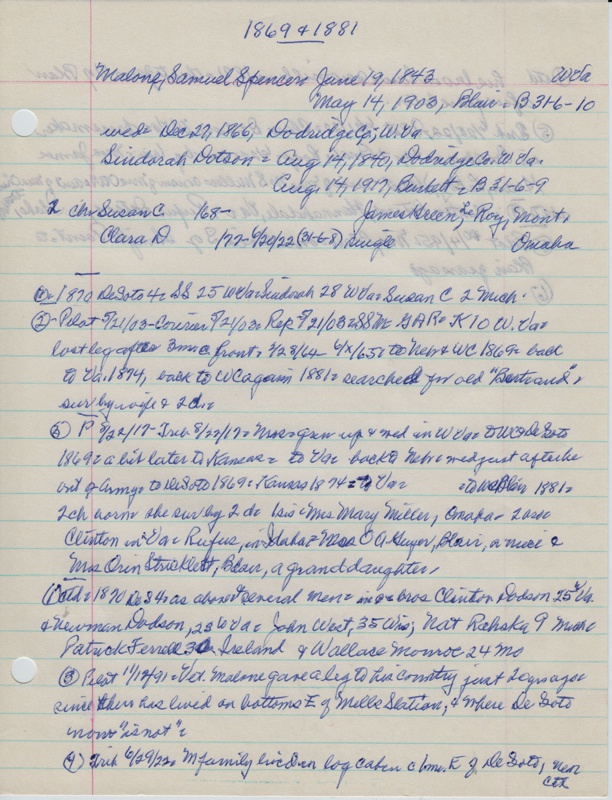 1869 & 1881
Malone, Samuel Spencer June 19, 1843 WVa
May 14, 1903, Blair = B31-6-10
wed = Dec 27, 1866, Dodridge Co; W. Va
Sindorah Dotson = Aug 14, 1840, Dodridge Co. W Va.
Aug. 14, 1917, Burkett = B 31-6-9
2 ch = Susan C. '68- James Green, Le Roy, Mont,
Clara D. '72-6/20/22 (31-6-8) single Omaha
① = 1870 DeSoto 4 = SS 25 W Va = Sindorah 28 W Va = Susan C 2 Mich.
② - Pilot 5/21/03 - Courier 5/21/03 = Rep 5/21/03 = SSM GAR = K 10 W. Va =
lost leg after 3 mo @ front = to Neb & WC 1869 = back
to Va. 1874, back to WC again 1881 = searched for old "Bertrand",
sur by wife & 2 d =
⑤ P 8/22/17 - Trib 8/22/17 = Mrs = grew up & wed in W Va = to WC = DeSoto
1869 = a bit later to Kansas = to Va = back to Neb = wed just after he
out of army = to DeSoto 1869 = Kansas 1874 = to Va = to WC Blair 1881 =
2 ch born she sur by 2 d = 1 sis = Mrs Mary Miller, Omaha = 2 bro =
Clinton in Va = Rufus, in Idaho = Mrs O A Guyer, Blair, a niece &
Mrs Orin Stricklett, Blair, a granddaughter,
① Oth = 1870 De S 4 = as above & several men = bros Clinton Dodson 25 W Va
& Newman Dodson, 23 W Va = John West, 35 Wis; Nat Rahska 9
Patrick Ferrell 30 Ireland & Wallace Monroe 24 Mo
③ Pilot 11/12/91 = Vet. Malone gave a leg to his country just 2 ago
since then has lived on bottoms E of Mills Station, & where De Soto
now "is not" =
④ Trib 6/29/22 = M family lived in log cabin c 1 m. E of De Soto, near